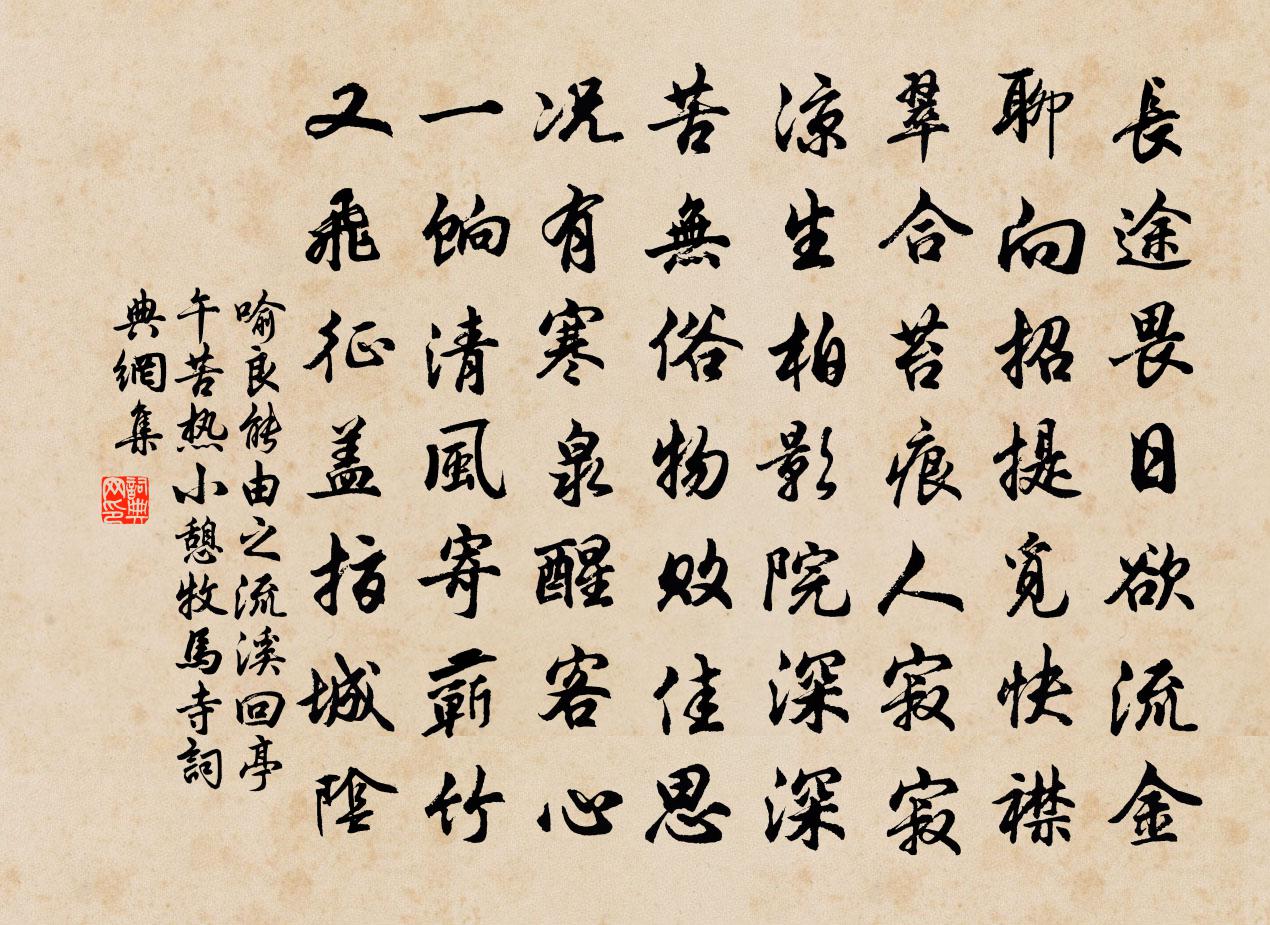 長途畏日欲流金
聊向招提覓快襟
翠合苔痕人寂寂
凉生柏影院深深
苦無俗物敗佳思
况有寒泉醒客心
一餉清風寄蘄竹
又飛征蓋指城陰
喻良能由之流溪回亭
午苦热小憩牧馬寺詞
典網集
詞典
网印